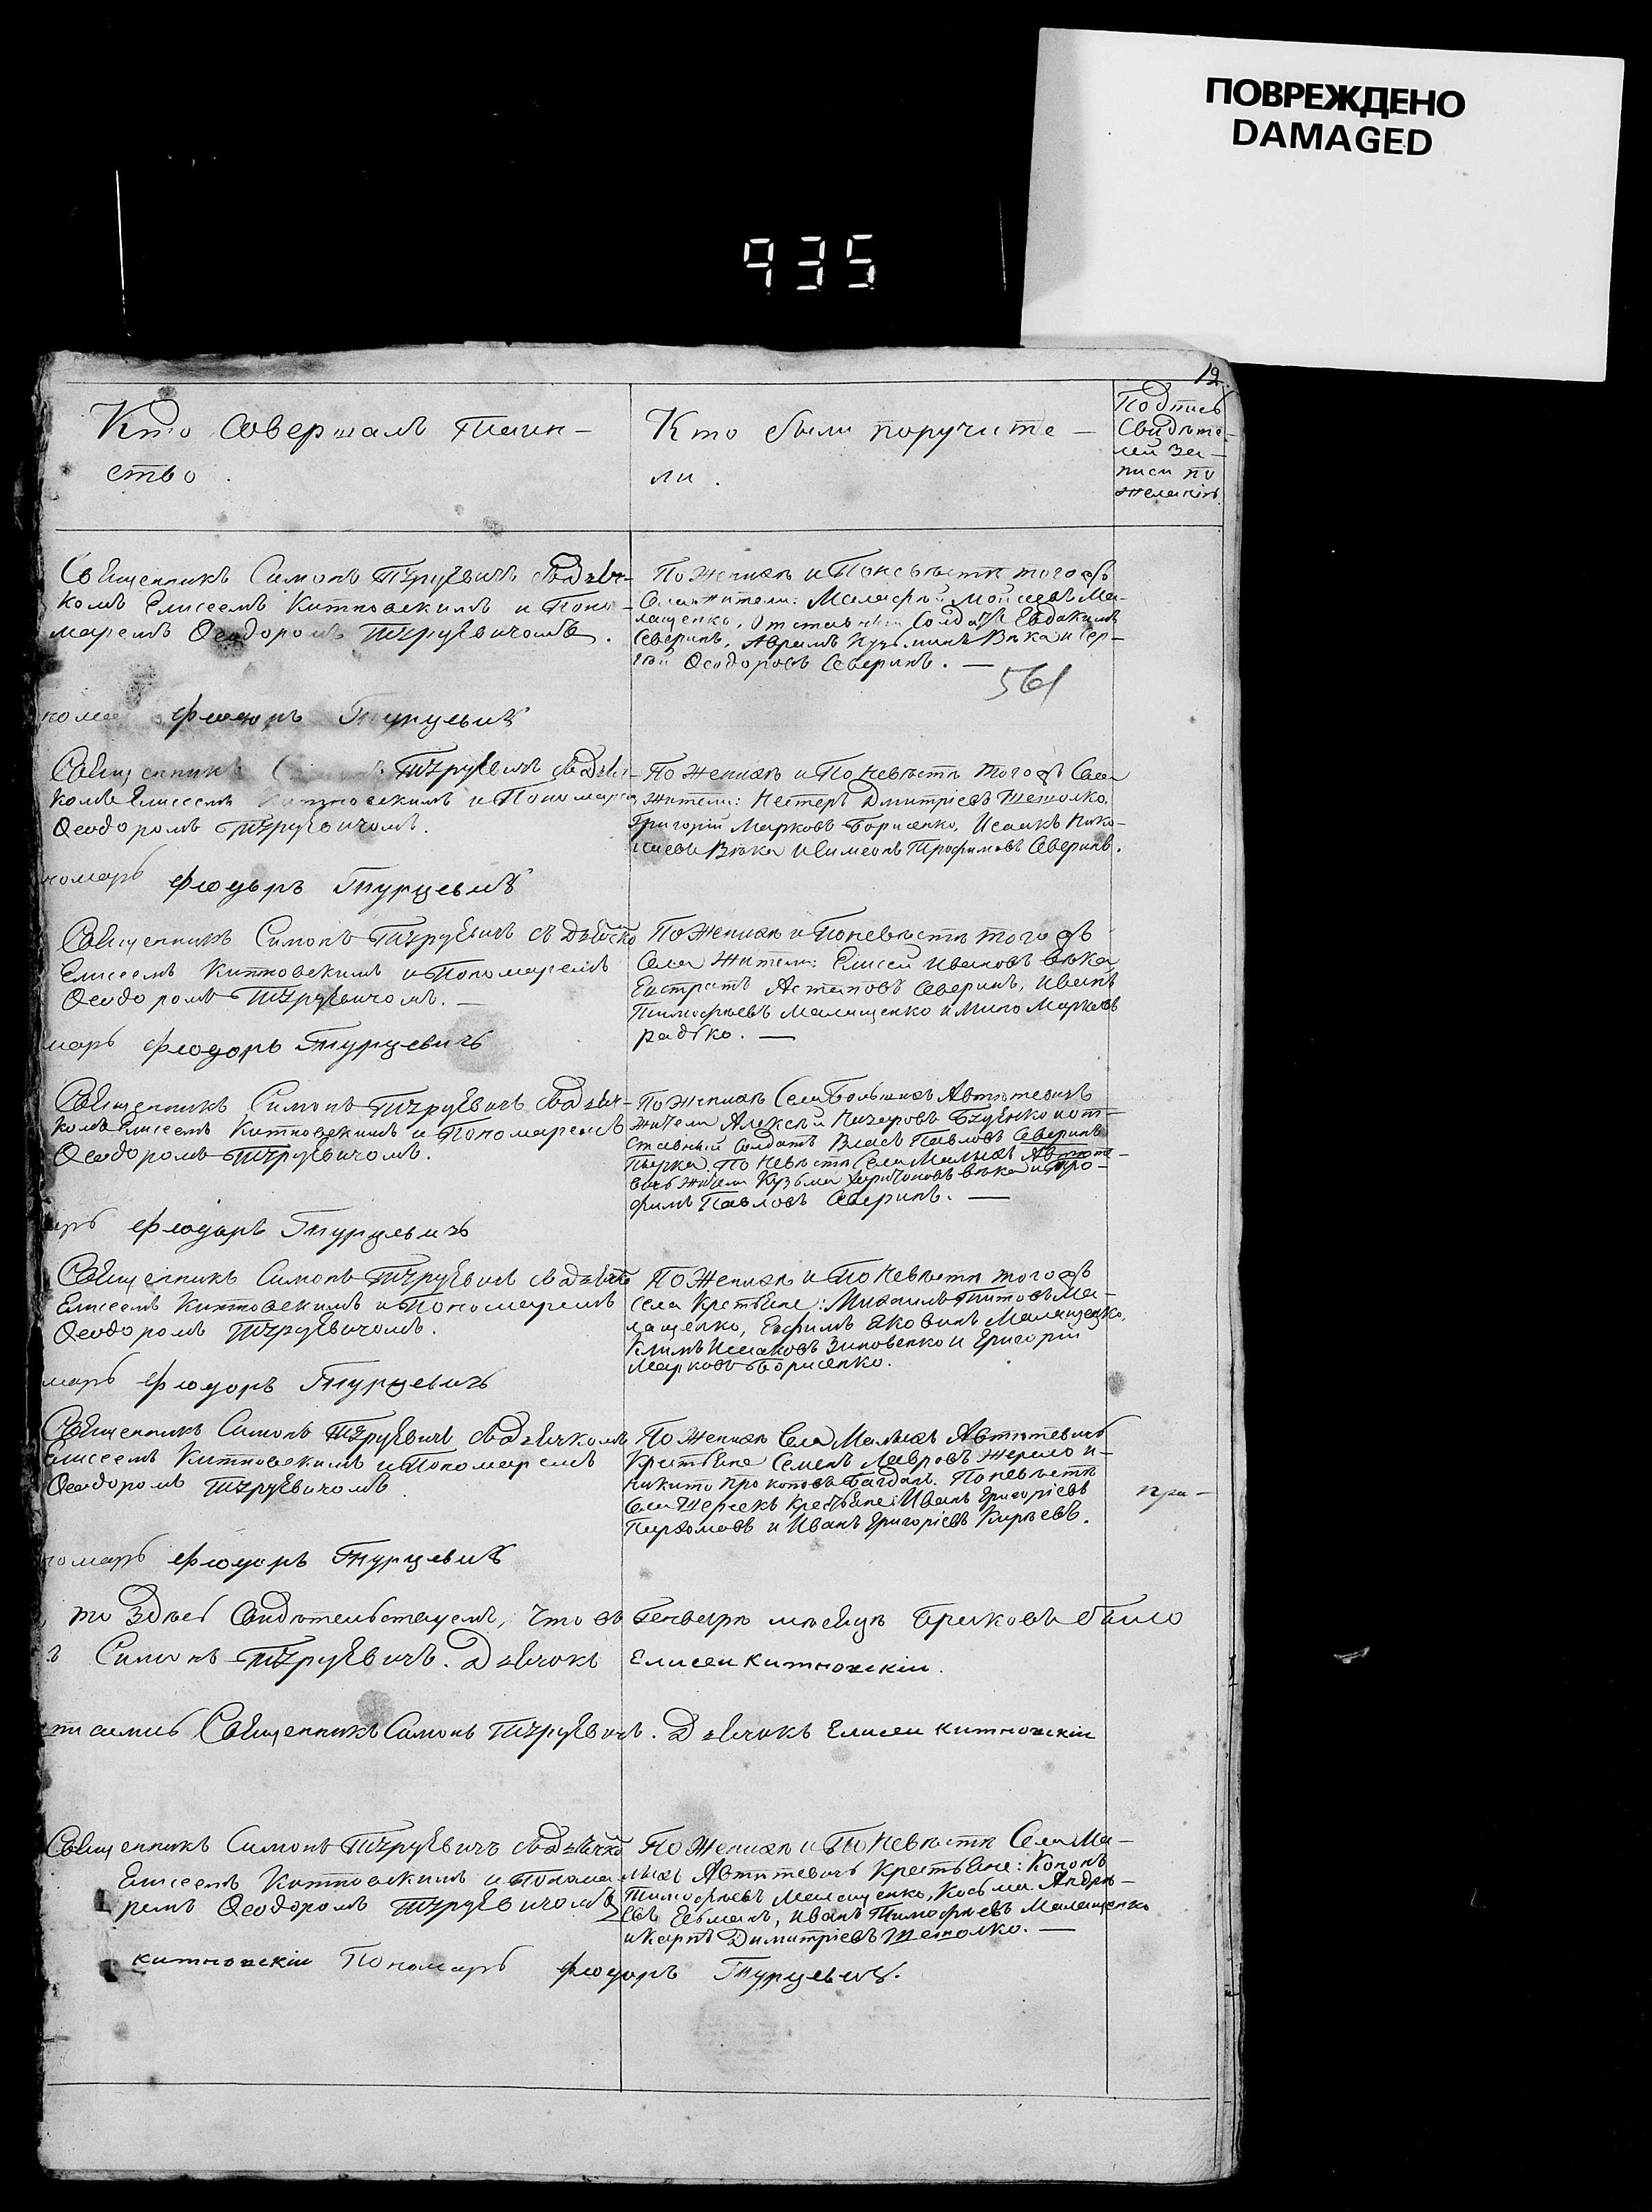 ПОВРЕЖДЕНО
DAMAGED
935
12.
Кто совершалъ таин-
ство.
Кто были поручите-
ли.
Подпись
свидѣте-
лей за-
писи по
желанію.
Священникъ Симонъ Турцевичъ съ дьяч-
комъ Елисеемъ Китновскимъ и Поно-
маремъ Ѳеодоромъ Турцевичомъ.
По женихѣ и По невѣстѣ того жъ
Села жители: Малафѣй Мойсеевъ Ма-
лащенко, отставный Солдатъ Евдокимъ
Северинъ, Аврамъ Кузьминъ Вѣка и Сер-
гѣй Ѳеодоровъ Северинъ. —
561
Фѥодоръ Турцевичъ
Священникъ Турцевичъ съ дьяч-
комъ Елисеемъ Китновскимъ и Пономарем
Ѳеодоромъ Турцевичомъ.
По женихѣ и По невѣстѣ того жъ Села
жители: Нестеръ Дмитріевъ Шеголко,
Григорій Марковъ Борисенко, Исаакъ Нико-
лаевъ Вѣка и Симеонъ Трофимовъ Северинъ.
номарь Фѥодоръ Турцевичъ
Священникъ Симонъ Турцевичъ съ дьячко
Елисеемъ Китновскимъ и Пономаремъ
Ѳеодоромъ Турцевичомъ. —
По женихѣ и По невѣстѣ того жъ
Села жители: Елисей Ивановъ Вѣка
Евстратъ Астаповъ Северинъ, Иванъ
Тимофѣевъ Малащенко и Марковъ
Радько. —
марь Фѥодоръ Турцевичъ
Священникъ Симонъ Турцевичъ съ дьяч-
комъ Елисеемъ Китновскимъ и Пономаремъ
Ѳеодоромъ Турцевичомъ.
По женихѣ Села Большихъ Автютевичъ
жители Алексѣй и от-
ставный Солдатъ Власъ Павловъ Северинъ
По невѣстѣ Села Малыхъ Автюте-
вичъ жители Кузьма Вѣка и Тро-
фимъ Павловъ Северинъ. —
арь Фѥодоръ Турцевичъ
Священникъ Симонъ Турцевичъ съ дьячко
Елисеемъ Китновскимъ и Пономаремъ
Ѳеодоромъ Турцевичомъ.
По женихѣ и По невѣстѣ того жъ
Села Крестьяне: Михаилъ Титовъ Ма-
лащенко, Ефимъ Яковинъ Малащенко,
Климъ Исаковъ Зиновенко и Григорій
Марковъ Борисенко.
марь Фѥодоръ Турцевичъ
Священникъ Симонъ Турцевичъ съ дьячкомъ
Елисеемъ Китновскимъ и Пономаремъ
Ѳеодоромъ Турцевичомъ.
По женихѣ Села Малыхъ Автютевичъ
Крестьяне Семенъ Лавровъ Жерело и
Никита Прокоповъ Багданъ. По невѣстѣ
Села Крестьяне: Иванъ Григоріевъ
Пархомовъ и Иванъ Григоріевъ Кирѣевъ.
при-
номарь Фѥодоръ Турцевичъ
то здѣсь свидѣтельствуемъ, что въ Генварѣ мѣсяцѣ браковъ было
ъ Симонъ Турцевичъ. Дьячокъ Елисей Китновскій.
таемъ Священникъ Симонъ Турцевичъ. Дьячокъ Елисей Китновскій
Священникъ Симонъ Турцевичъ съ дьячко
Елисеемъ Китновскимъ и Понома
ремъ Ѳеодоромъ Турцевичомъ
По женихѣ и По невѣстѣ Села Ма-
лыхъ Автютевичъ Крестьяне: Кононъ
Тимофѣевъ Малащенко, Косьма Андрѣ-
евъ Иванъ Тимофѣевъ Малащенко
и Карпъ Димитріевъ Шеголко. —
Китновскій Пономарь Фѥодоръ Турцевичъ.